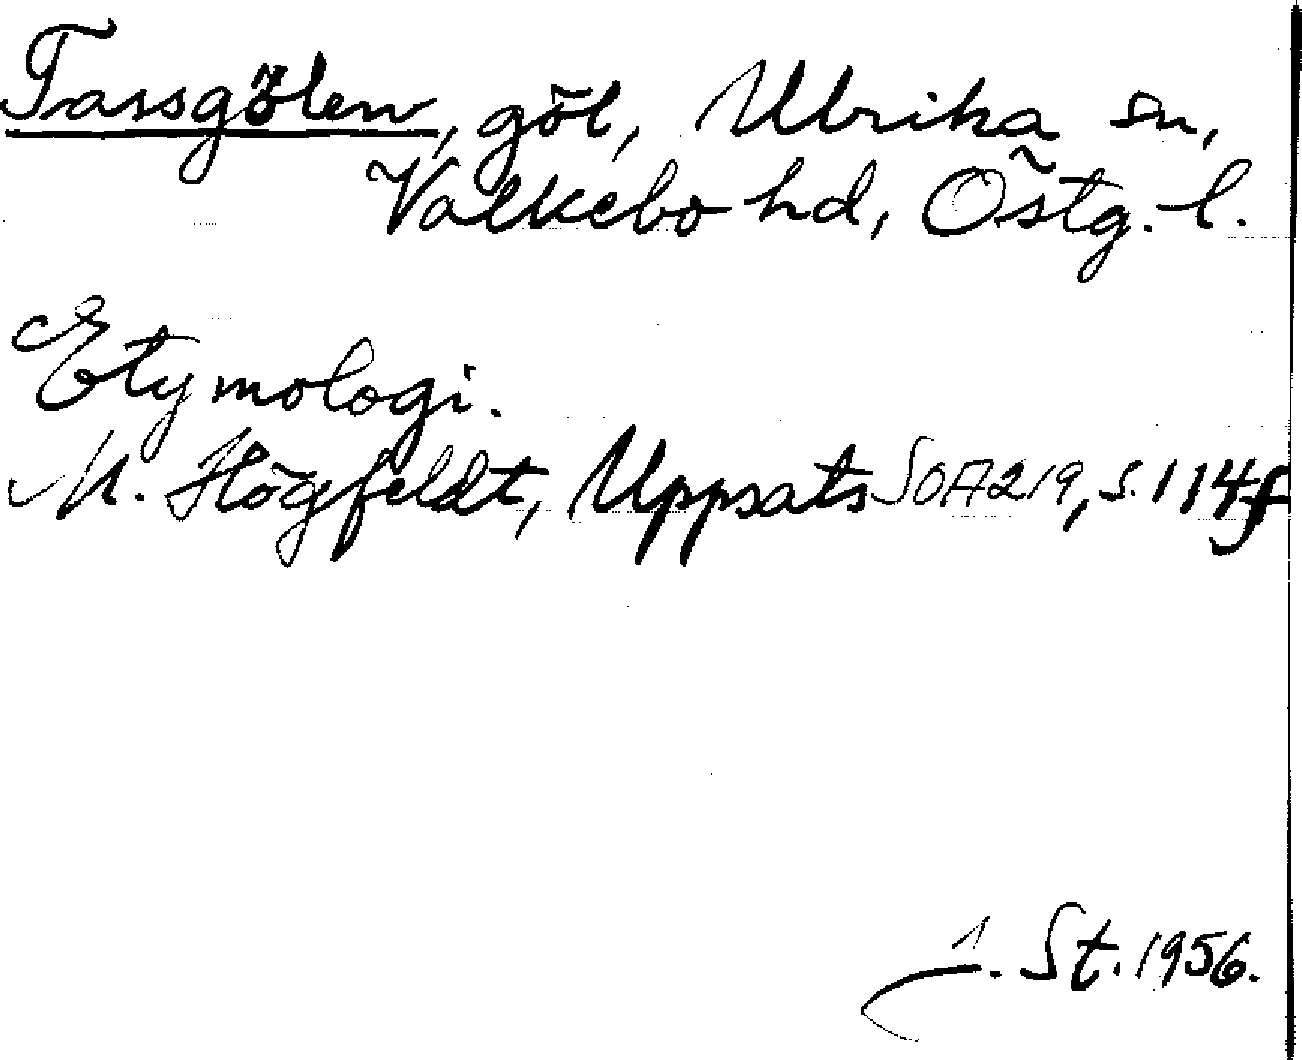 Tassgölen, göl, Ulrika sn,
Valkebo hd, Östg. l.
Etymologi.
M. Högfeldt, Uppsats SOA219, s. 114f
J. St. 1956.